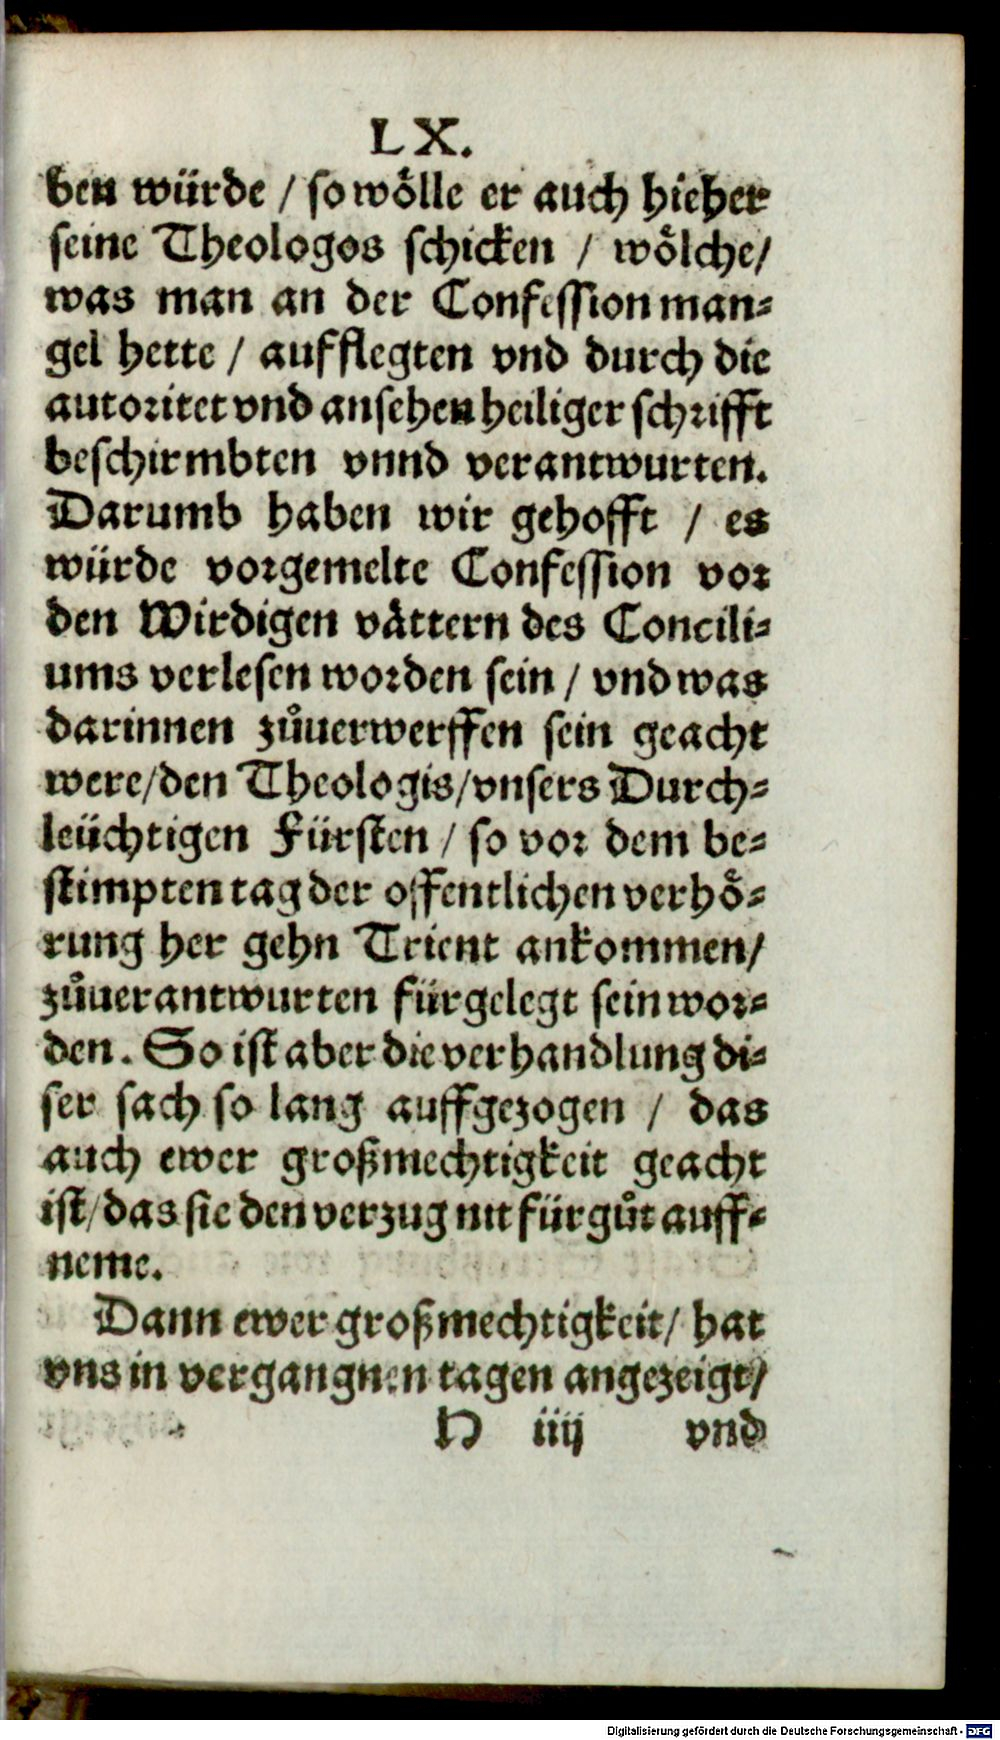 LX.
ben würde / so wölle er auch hieher
seine Theologos schicken / wölche/
was man an der Confession man-
gel hette / aufflegten vnd durch die
autoritet vnd ansehen heiliger schrifft
beschirmbten vnnd verantwurten.
Darumb haben wir gehofft / es
würde vorgemelte Confession vor
den Wirdigen vättern des Concili-
ums verlesen worden sein / vnd was
darinnen zůuerwerffen sein geacht
were/den Theologis/vnsers Durch-
leüchtigen Fürsten / so vor dem be-
stimpten tag der offentlichen verhö-
rung her gehn Trient ankommen/
zůuerantwurten fürgelegt sein wor-
den. So ist aber die verhandlung di-
ser sach so lang auffgezogen / das
auch ewer großmechtigkeit geacht
ist/das sie den verzug nit für gůt auff-
neme.
Dann ewer großmechtigkeit/ hat
vns in vergangnen tagen angezeigt/
H iiij vnd
Digitalisierung gefördert durch die Deutsche Forschungsgemeinschaft - DFG